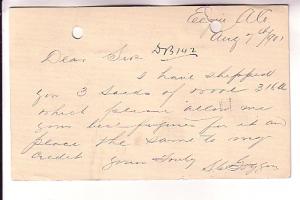 Aug 7th/901
Dear Sir DB142
I have shipped
you 3 sacks of wool 316 lb
which please allow me
your best figures for it and
place the same to my
credit Yours Truly